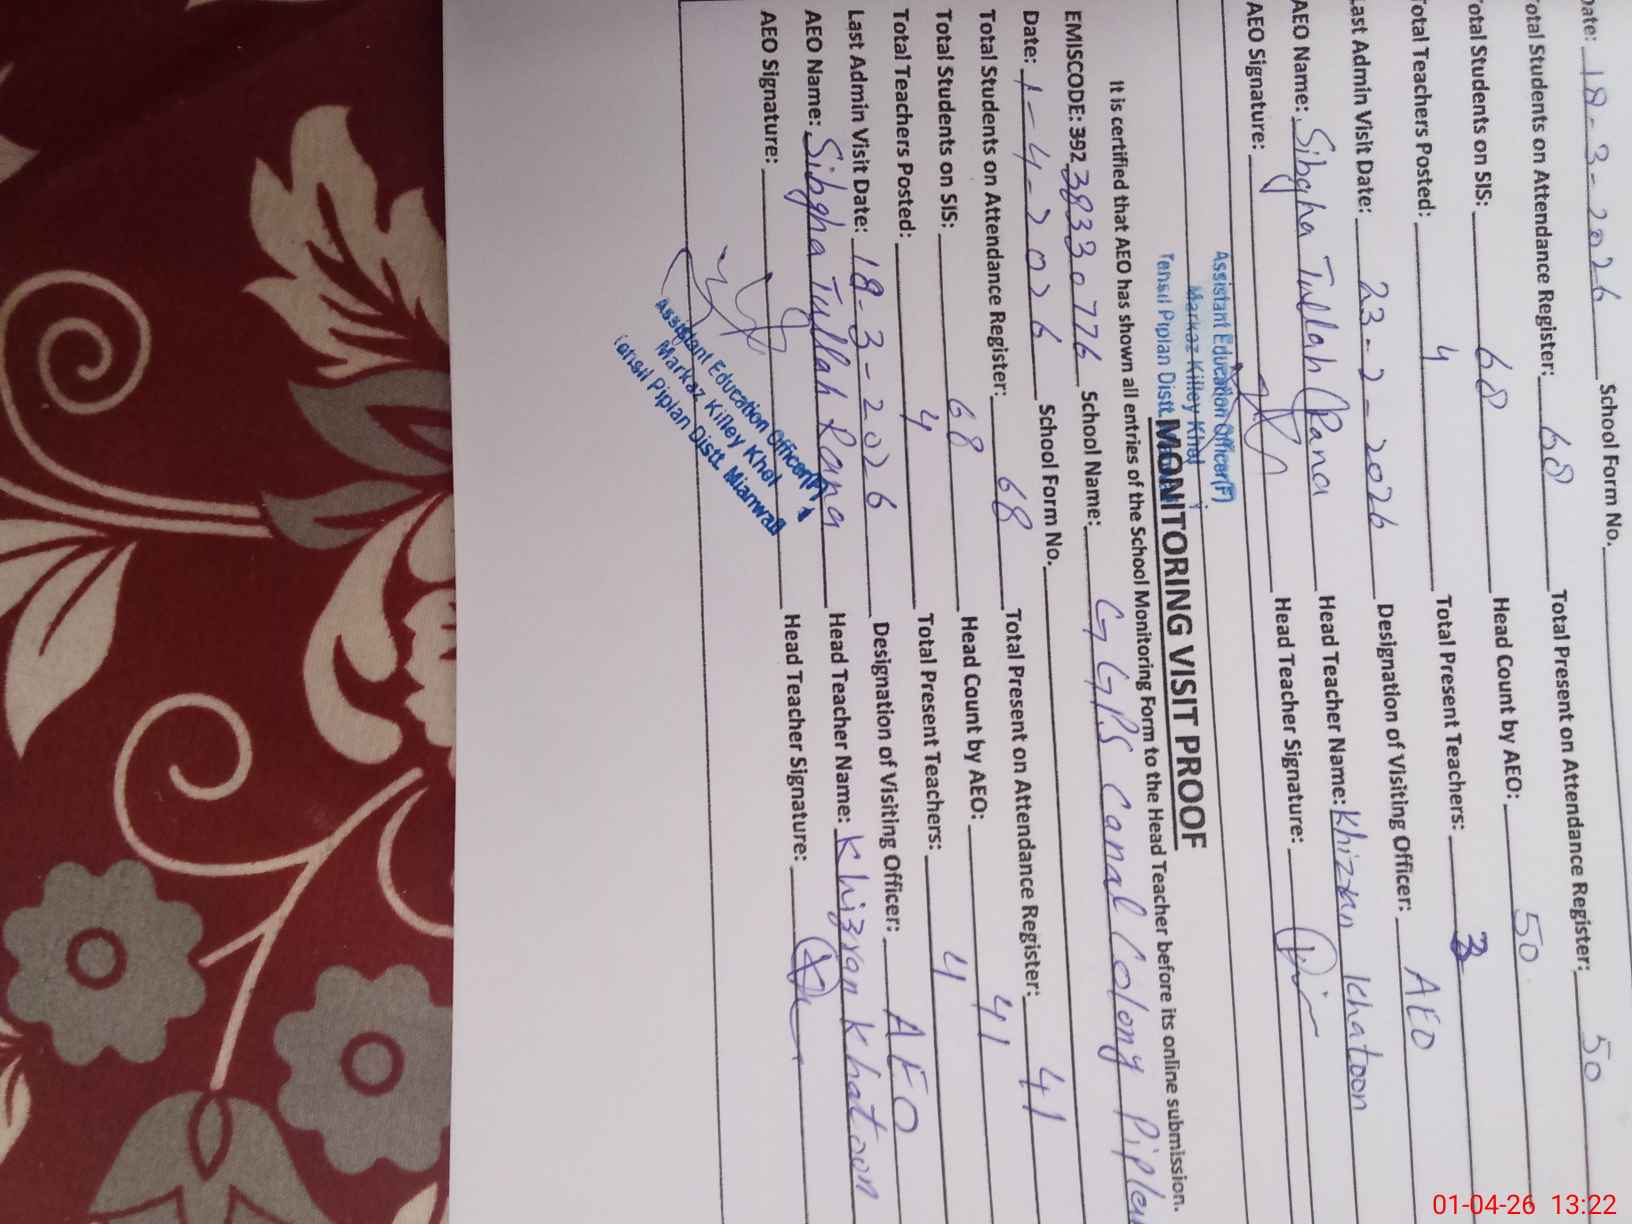 Date: 18-3-2026 School Form No.
Total Students on Attendance Register: 68 Total Present on Attendance Register: 50
Total Students on SIS: 68 Head Count by AEO: 50
Total Teachers Posted: 4 Total Present Teachers: 3
Last Admin Visit Date: 23-2-2026 Designation of Visiting Officer: AEO
AEO Name: Sibgha Tullah Rana Head Teacher Name: Khizran Khatoon
AEO Signature: Head Teacher Signature:
Assistant Education Officer(F)
Markaz Killey Khel
Tehsil Piplan Distt.
MONITORING VISIT PROOF
It is certified that AEO has shown all entries of the School Monitoring Form to the Head Teacher before its online submission.
EMISCODE: 392 38330776 School Name: GGPS Canal Colony Piplan
Date: 1-4-2026 School Form No.
Total Students on Attendance Register: 68 Total Present on Attendance Register: 41
Total Students on SIS: 68 Head Count by AEO: 41
Total Teachers Posted: 4 Total Present Teachers: 4
Last Admin Visit Date: 18-3-2026 Designation of Visiting Officer: AEO
AEO Name: Sibgha Tullah Rana Head Teacher Name: Khizran Khatoon
AEO Signature: Head Teacher Signature:
Assistant Education Officer(F)
Markaz Killey Khel
Tehsil Piplan Distt. Mianwali
01-04-26 13:22